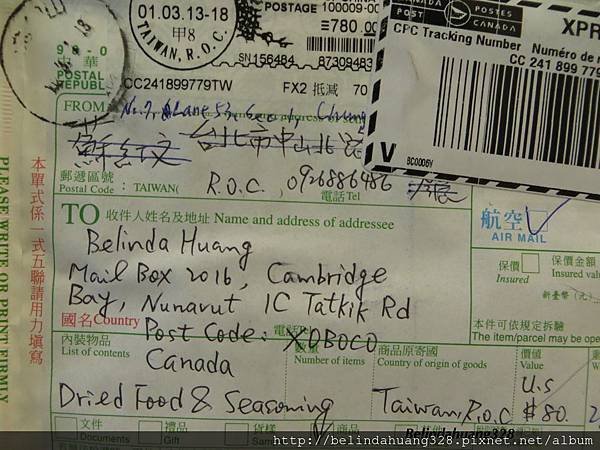 01.03.13-18
甲8
TAIWAN, R.O.C.
POSTAGE 100009-00
≡780.00
SN156484 87309483
CC241899779TW FX2 抵減 70
CANADA POST POSTES CANADA
XPR
CPC Tracking Number Numéro de
CC 241 899 779
V
BC0006V
中華
POSTAL
REPUBL
FROM
台北市中山北
郵遞區號
Postal Code : TAIWAN( R.O.C. 電話Tel 0926886486
TO 收件人姓名及地址 Name and address of addressee
Belinda Huang
Mail Box 2016, Cambridge
Bay, Nunavut 1C Tatkik Rd
國名Country Post Code: X0B0C0
Canada
航空
AIR MAIL
保價 保價金額
Insured Insured value
新臺幣(元)
本件可依規定拆驗
The item/parcel may be open
內裝物品 數量 商品原寄國 價值
List of contents Number of items Country of origin of goods Value
Dried Food & Seasoning Taiwan, R.O.C U.S $80.
文件 禮品 貨樣 商品
Documents Gift
本單式係一式五聯請用力填寫
PLEASE WRITE OR PRINT FIRMLY
Belindahuang328
http://belindahuang328.pixnet.net/album